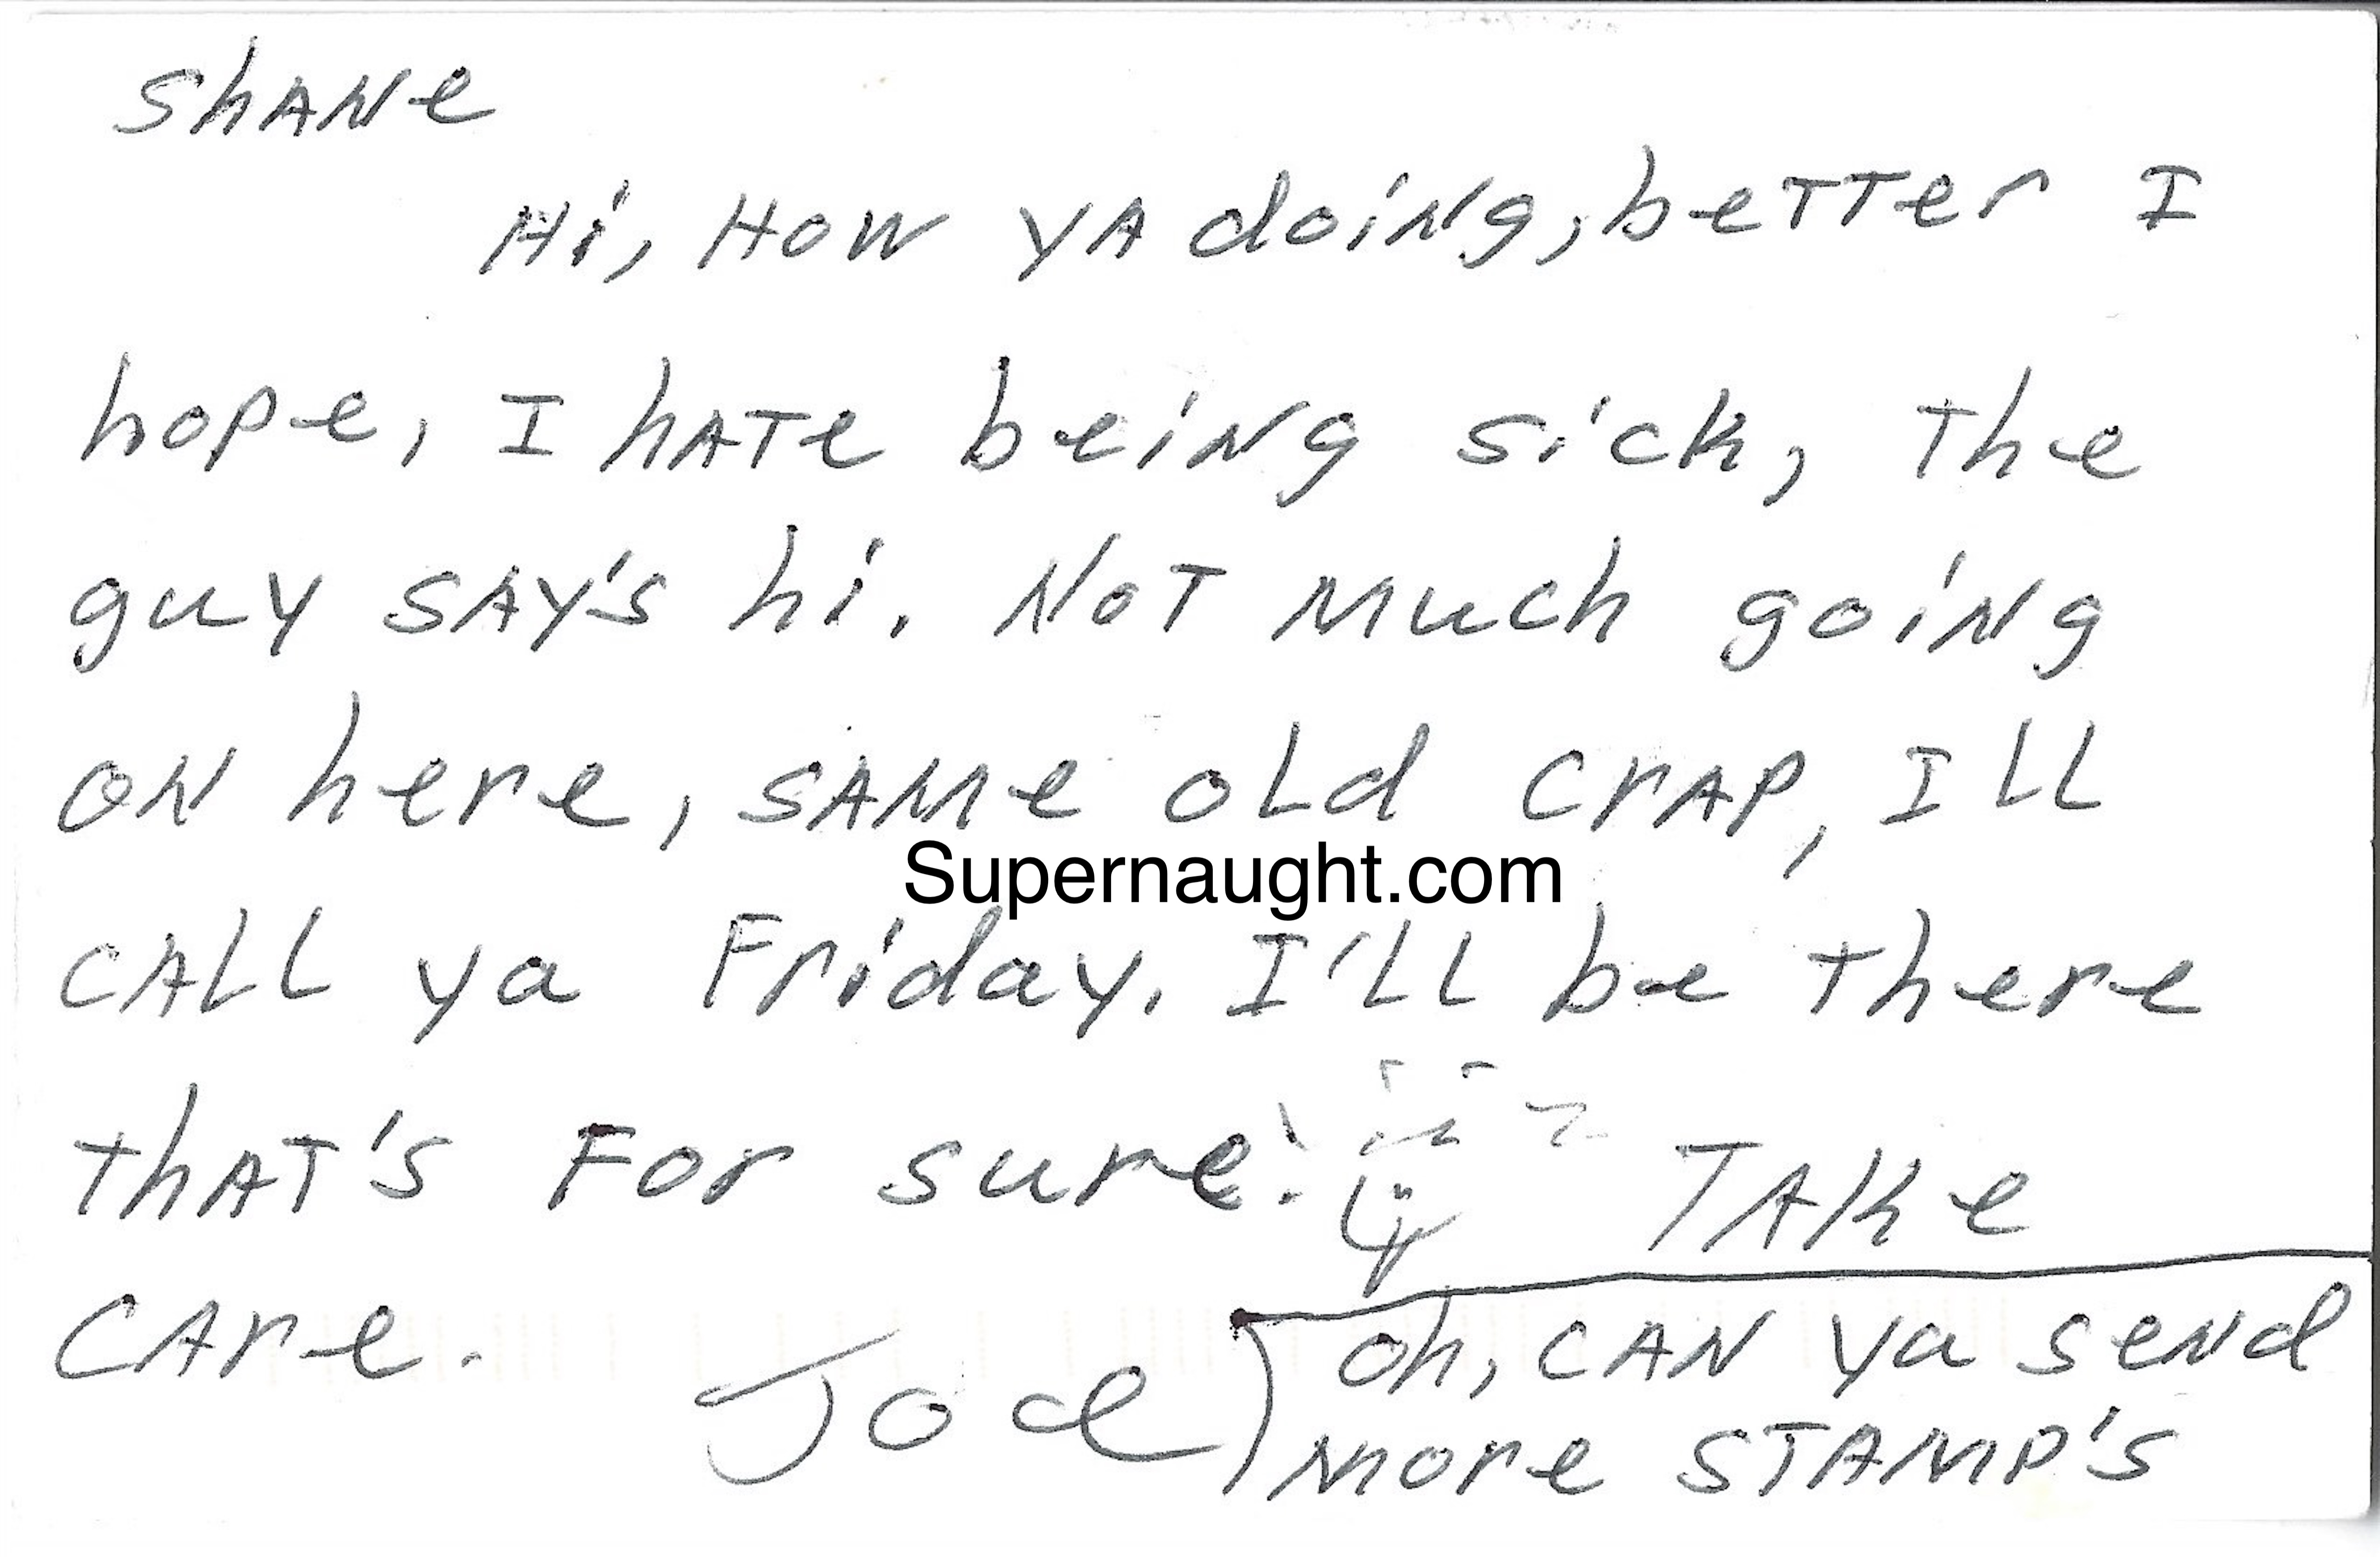 Shane
Hi, How ya doing, better I
hope, I hate being sick, the
guy say's hi. Not much going
on here, same old crap, Ill
Supernaught.com
call ya Friday. I'll be there
that's For sure! Take
care.
Joe
oh, can ya send
more stamp's